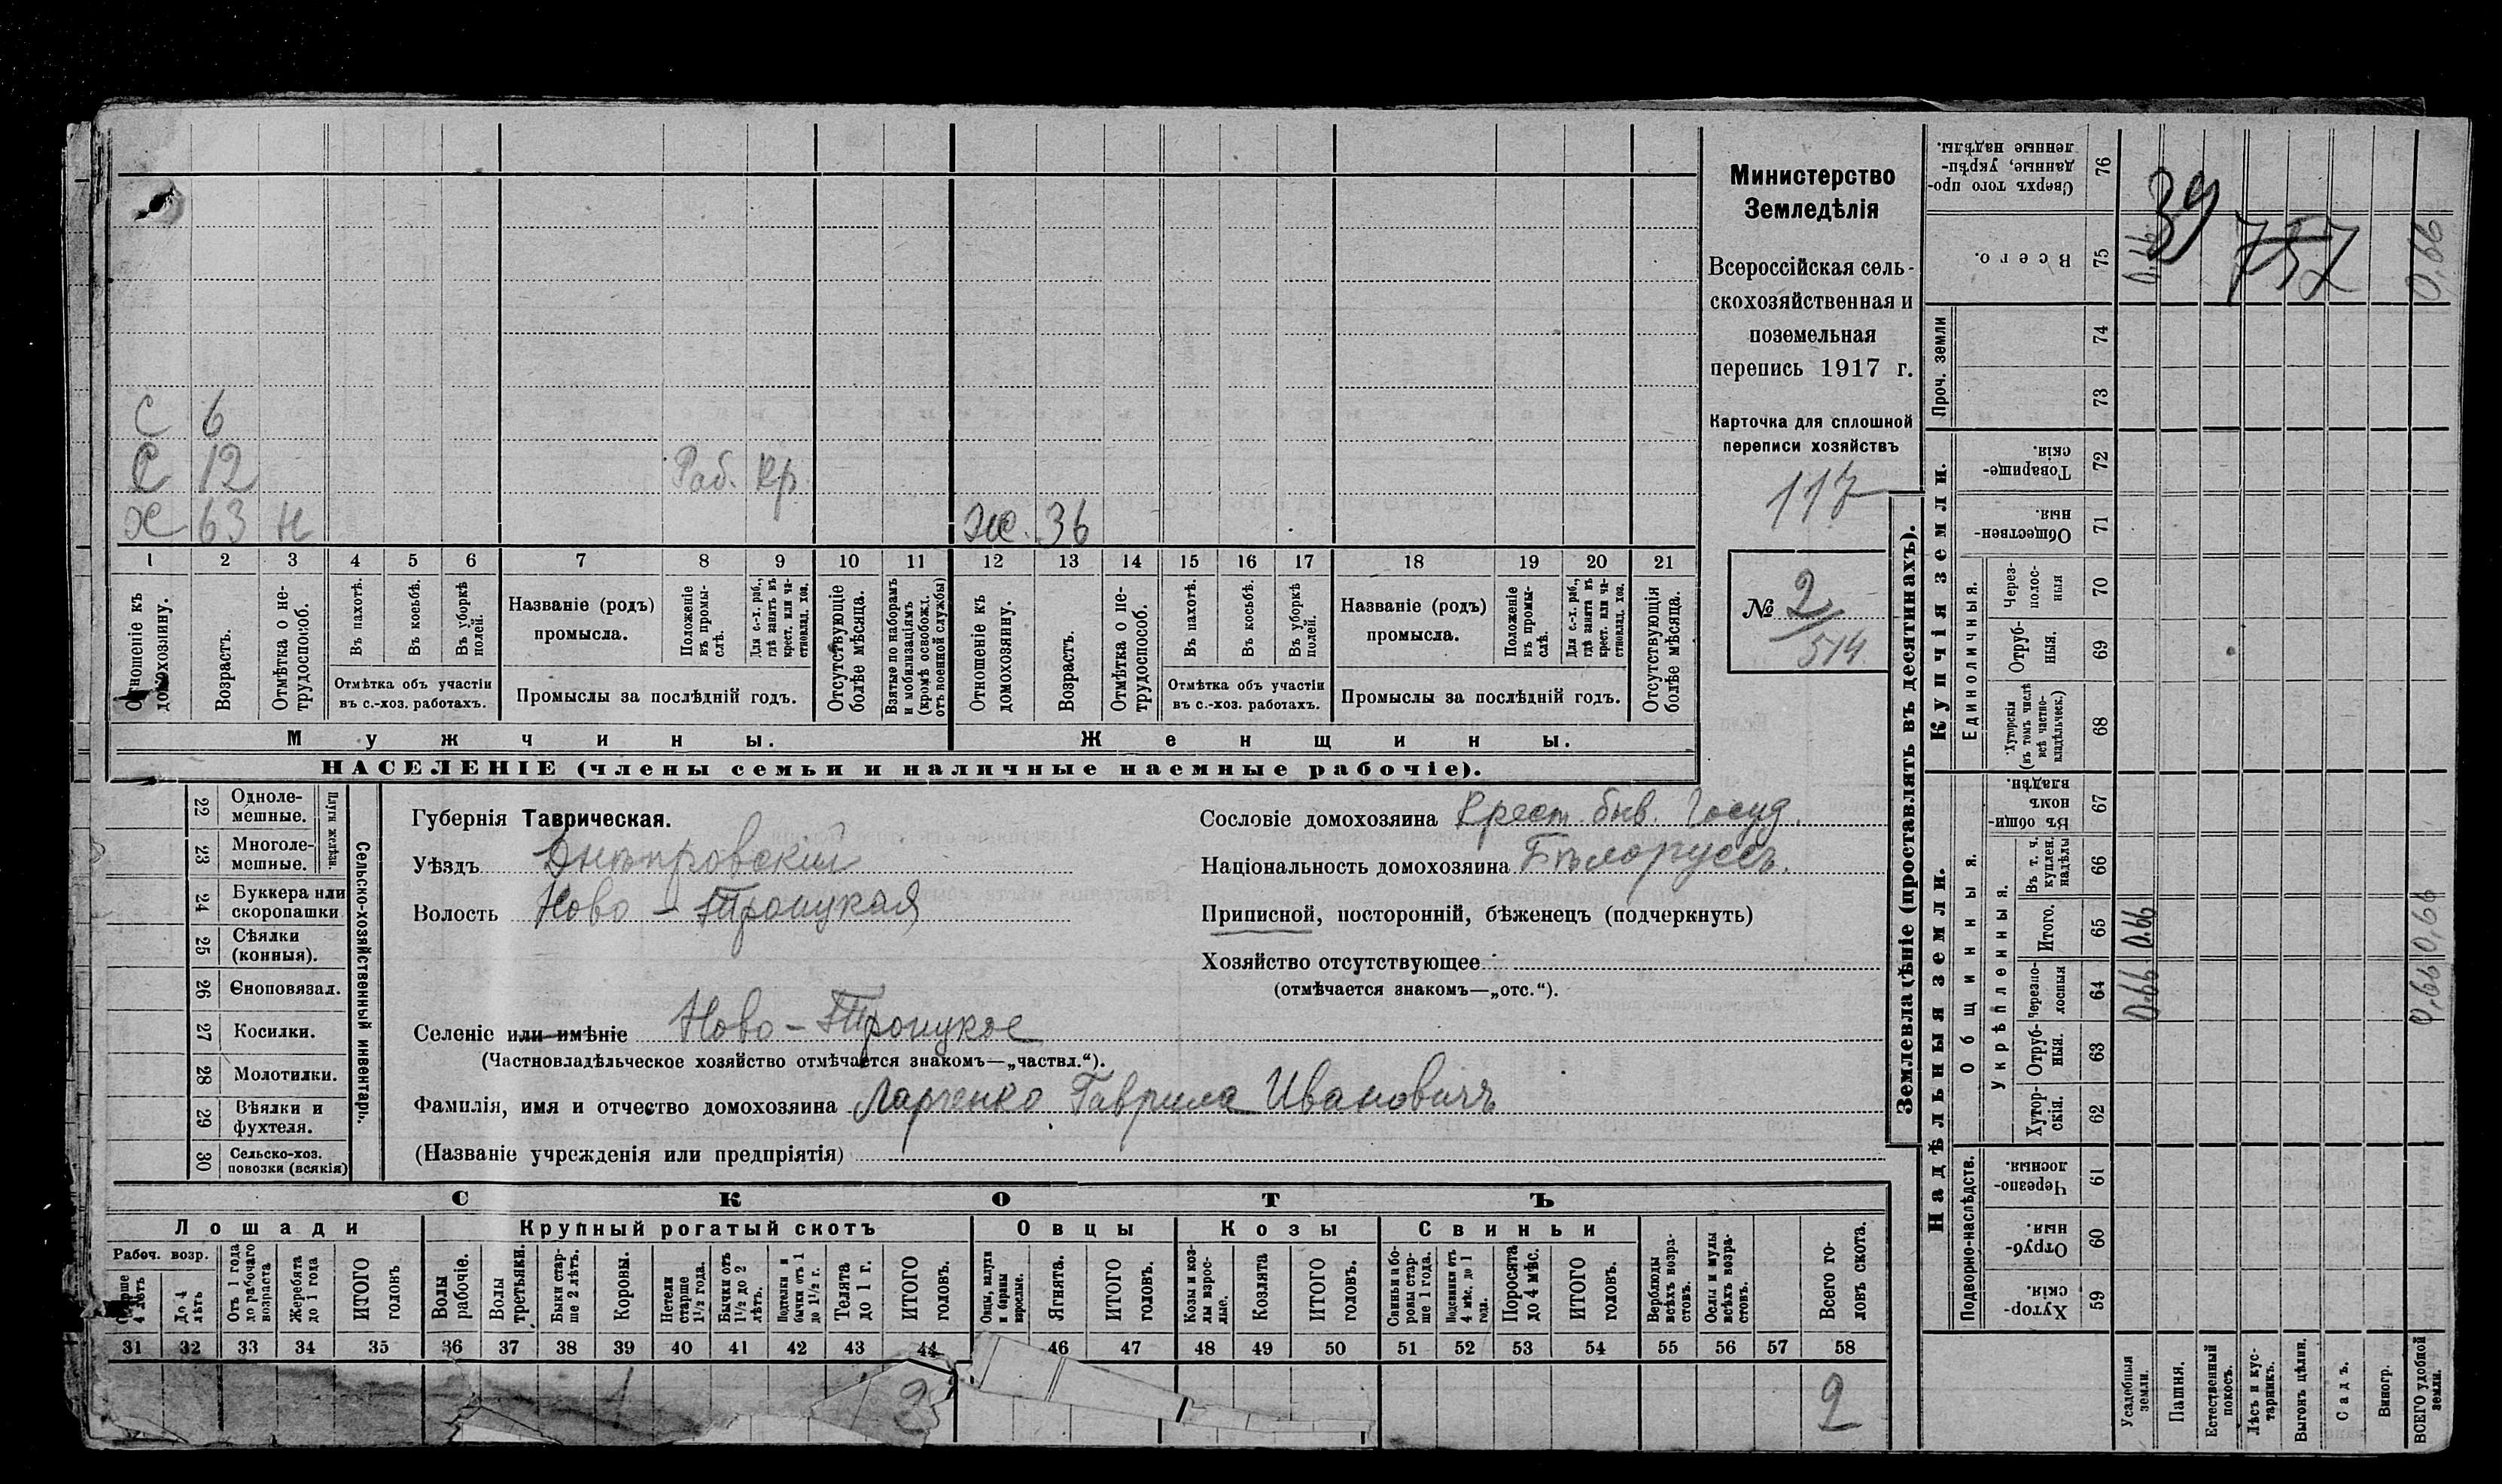 С 6
С 12 Раб. Кр.
Х 63 Н Ж. 36
1 2 3 4 5 6 7 8 9 10 11 12 13 14 15 16 17 18 19 20 21
Отношеніе къ домохозяину.
Возрастъ.
Отмѣтка о не-
трудоспособ.
Въ пахотѣ.
Въ косьбѣ.
Въ уборкѣ
полей.
Отмѣтка объ участіи
въ с.-хоз. работахъ.
Названіе (родъ)
промысла.
Положеніе
въ промы-
слѣ.
Для с.-х. раб.,
гдѣ занятъ въ
крест. или ча-
стновлад. хоз.
Промыслы за послѣдній годъ.
Отсутствующіе
болѣе мѣсяца.
Взятые по наборамъ
и мобилизаціямъ
(кромѣ освобожд.
отъ военной службы)
Отношеніе къ
домохозяину.
Возрастъ.
Отмѣтка о не-
трудоспособ.
Въ пахотѣ.
Въ косьбѣ.
Въ уборкѣ
полей.
Отмѣтка объ участіи
въ с.-хоз. работахъ.
Названіе (родъ)
промысла.
Положеніе
въ промы-
слѣ.
Для с.-х. раб.,
гдѣ занята въ
крест. или ча-
стновлад. хоз.
Промыслы за послѣдній годъ.
Отсутствующія
болѣе мѣсяца.
Мужчины. Женщины.
НАСЕЛЕНІЕ (члены семьи и наличные наемные рабочіе).
Министерство
Земледѣлія
Всероссійская сель-
скохозяйственная и
поземельная
перепись 1917 г.
Карточка для сплошной
переписи хозяйствъ
117
№ 2/514
22 Одноле-
мешные.
23 Многоле-
мешные.
Плуги желѣзн.
24 Буккера или
скоропашки
25 Сѣялки
(конныя).
26 Сноповязал.
27 Косилки.
28 Молотилки.
29 Вѣялки и
фухтеля.
30 Сельско-хоз.
повозки (всякія)
Сельско-хозяйственный инвентарь.
Губернія Таврическая.
Уѣздъ Днѣпровскій
Волость Ново-Троицкая
Селеніе или имѣніе Ново-Троицкое
(Частновладѣльческое хозяйство отмѣчается знакомъ—„частвл.“).
Фамилія, имя и отчество домохозяина Ларченко Гаврила Ивановичъ
(Названіе учрежденія или предпріятія)
Сословіе домохозяина Крест. быв. Госуд.
Національность домохозяина Бѣлоруссъ.
Приписной, посторонній, бѣженец (подчеркнуть)
Хозяйство отсутствующее
(отмѣчается знакомъ—„отс.“).
СКОТЪ
Лошади Крупный рогатый скотъ Овцы Козы Свиньи
Рабоч. возр.
4 лѣтъ
До 4
лѣтъ
Отъ 1 года
до рабочаго
возраста
Жеребята
до 1 года
ИТОГО
головъ
Волы
рабочіе.
Волы
третьяки.
Быки стар-
ше 2 лѣтъ.
Коровы.
Нетели
старше
1½ года.
Бычки отъ
1½ до 2
лѣтъ.
бычки отъ 1
до 1½ г.
Телята
до 1 г.
ИТОГО
головъ.
Овцы, валухи
и бараны
взрослые.
Ягнята.
ИТОГО
головъ.
Козы и коз-
лы взрос-
лые.
Козлята
ИТОГО
головъ.
Свиньи и бо-
ровы стар-
ше 1 года.
Подсвинки отъ
4 мѣс. до 1
года.
Поросята
до 4 мѣс.
ИТОГО
головъ.
Верблюды
всѣхъ возра-
стовъ.
Ослы и мулы
всѣхъ возра-
стовъ.
Всего го-
ловъ скота.
31 32 33 34 35 36 37 38 39 40 41 42 43 44 46 47 48 49 50 51 52 53 54 55 56 57 58
1 2 2
Землевладѣніе (проставлять въ десятинахъ).
Купчія земли.
Надѣльныя земли.
Сверхъ того про-
данные, укрѣп-
ленные надѣлы.
76
Всего.
75
Проч. земли
74
73
Товарище-
скія.
72
Обществен-
ныя.
71
Единоличныя.
Через-
полос-
ныя
70
Отруб-
ныя.
69
Хуторскія
(въ томъ числѣ
всѣ частно-
владѣльческ.)
68
Общинныя.
Въ общи-
номъ
владѣн.
67
Въ т. ч.
куплен.
надѣлы
66
Укрѣпленныя.
Итого.
65
Черезпо-
лосныя
64
Отруб-
ныя.
63
Хутор-
скія.
62
Подворно-наслѣдств.
Черезпо-
лосныя.
61
Отруб-
ныя.
60
Хутор-
скія.
59
39
757
0,66 0,66
0,66 0,66
0,66 0,66
Усадебныя
земли.
Пашня.
Естественный
покосъ.
Лѣсъ и кус-
тарникъ.
Выгонъ цѣлин.
Садъ.
Виногр.
ВСЕГО удобной
земли.